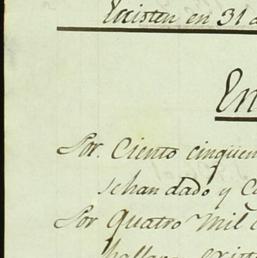 Existen en 31 d
En
Por Ciento cinquen
se han dado y C
Por Quatro Mil c
hallan existe